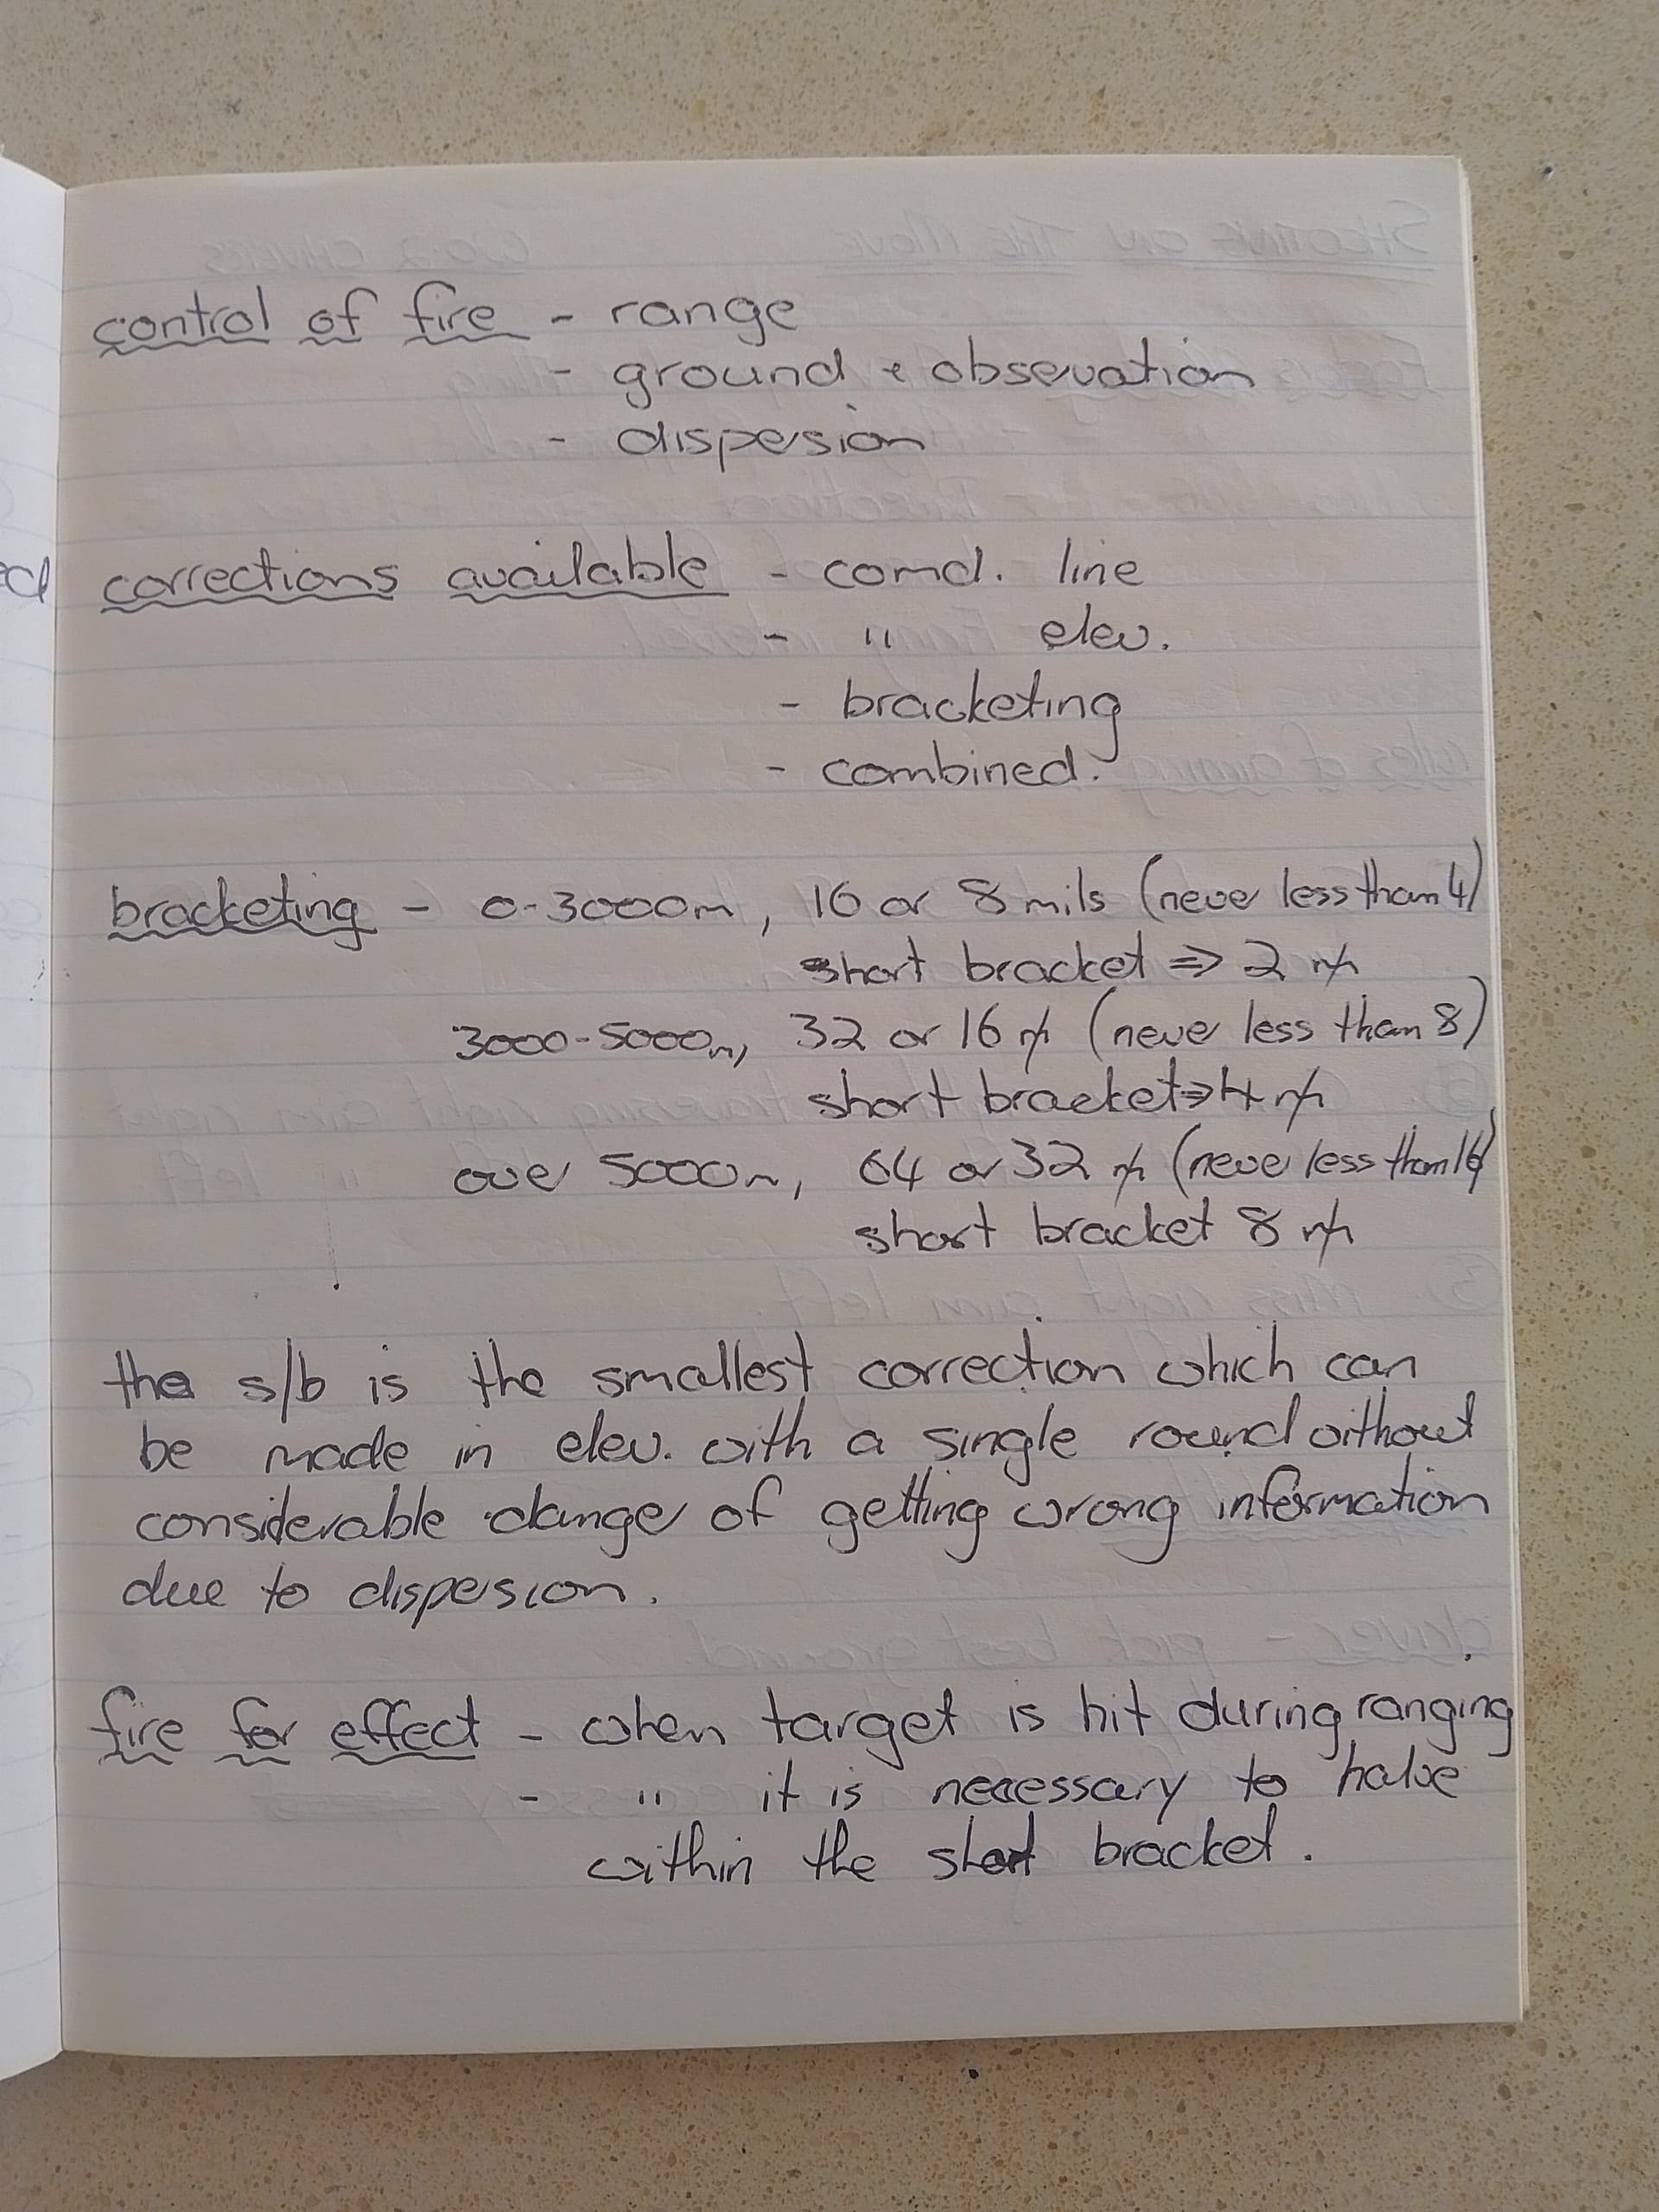 control of fire - range
- ground + observation
- dispersion
corrections available - comd. line
- " elev.
- bracketing
- combined.
bracketing - 0-3000m, 16 or 8 mils (never less than 4)
short bracket ⇒ 2 m
3000-5000m, 32 or 16 m (never less than 8)
short bracket ⇒ 4 m
over 5000m, 64 or 32 m (never less than 16)
short bracket 8 m
the s/b is the smallest correction which can
be made in elev. with a single round without
considerable danger of getting wrong information
due to dispersion.
fire for effect - when target is hit during ranging
- " it is necessary to halve
within the short bracket.